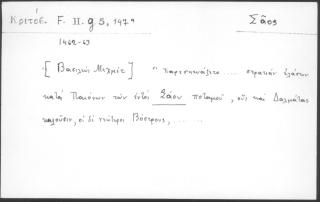 Κριτόβ. F. II. g 5, 147ª
Σᾶος
1462-63
[Βασιλεὺς Μεχμὲτ] " παρεσκευάζετο .... στρατιὰν ἐλάσων
κατὰ Παιόνων τῶν ἐντὸς Σάου ποταμοῦ, οὓς καὶ Δαλμάτας
καλοῦσιν, οἱ δὲ νεώτεροι Βόστρους, .. ....